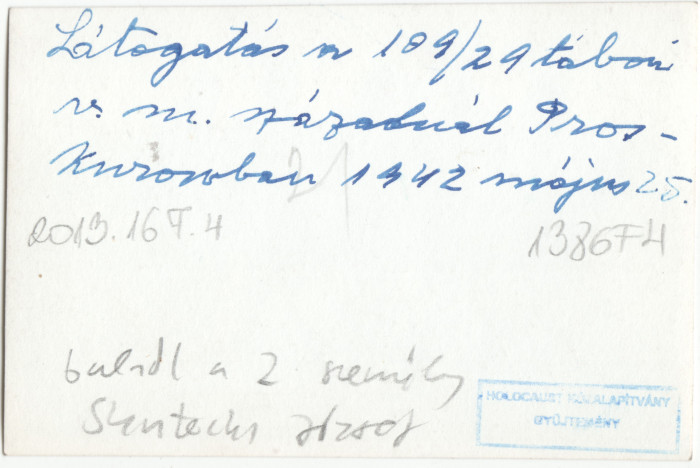 Látogatás a 109/29 tábori
v. m. századnál Pros-
kurowban 1942 május 25.
2013.16T.4
1386F4
balról a 2 személy
József
HOLOCAUST KÖZALAPÍTVÁNY
GYŰJTEMÉNY